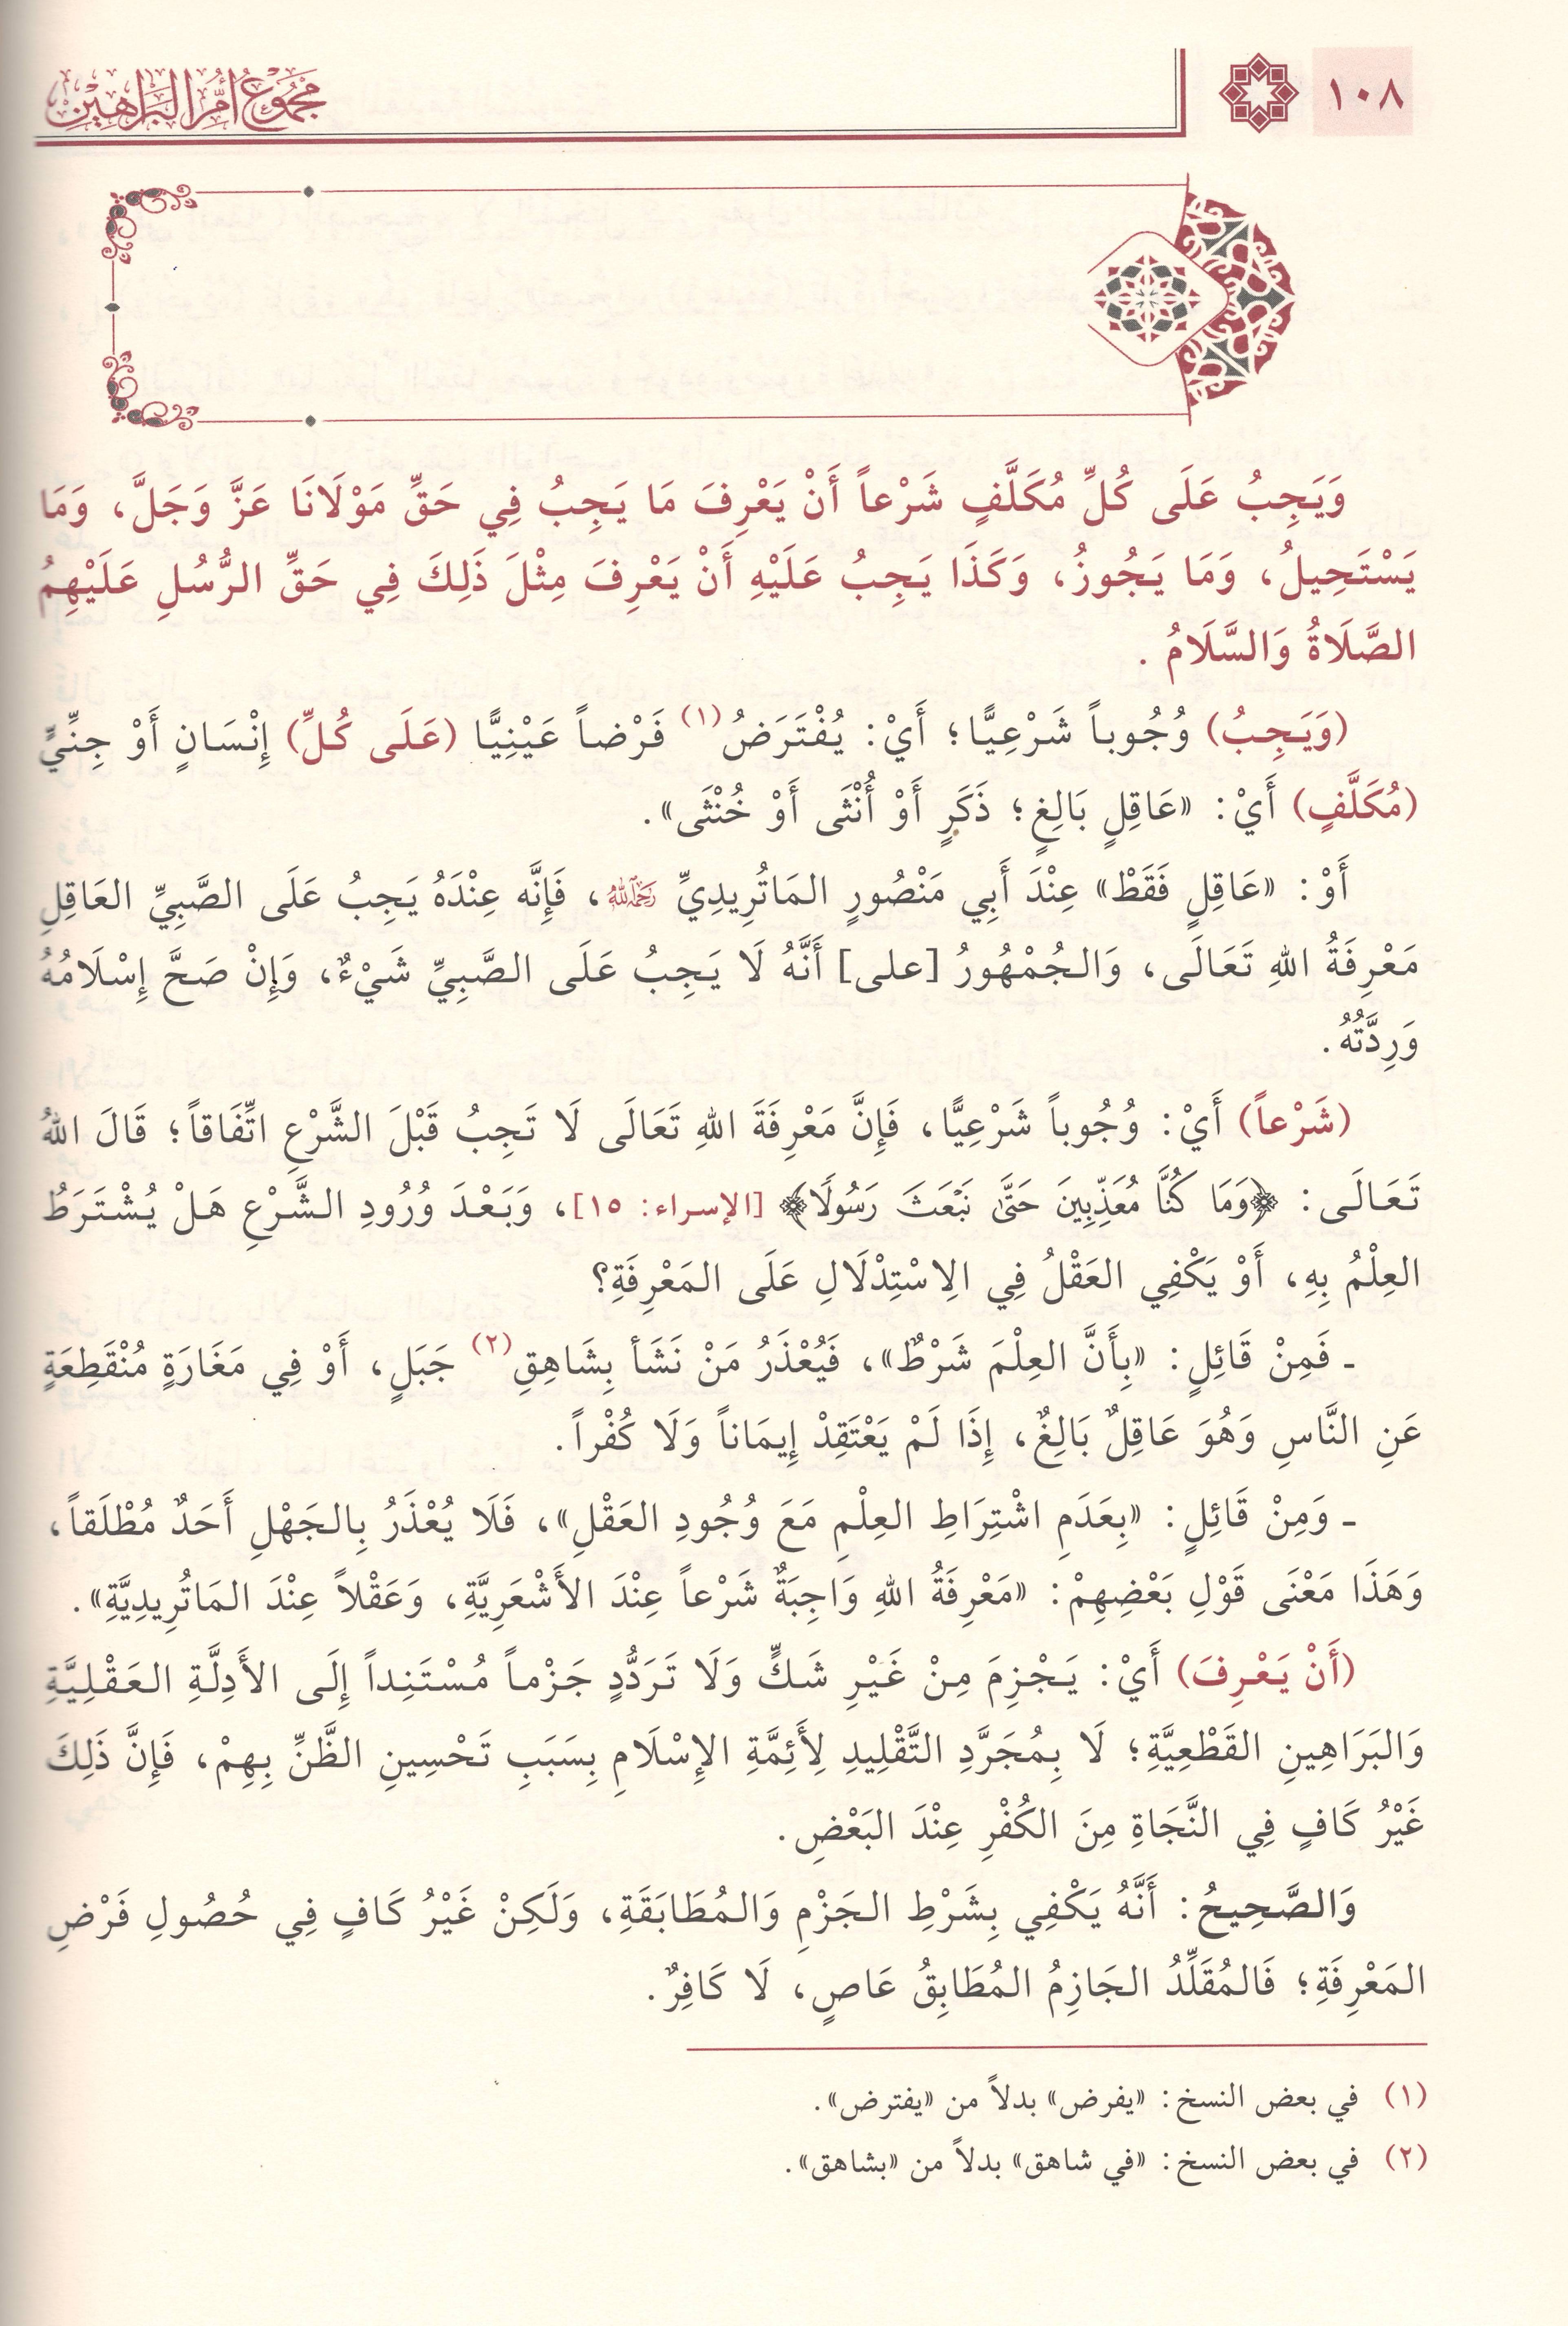 ١٠٨
مَجْمُوعُ أُمِّ البَرَاهِين
وَيَجِبُ عَلَى كُلِّ مُكَلَّفٍ شَرْعاً أَنْ يَعْرِفَ مَا يَجِبُ فِي حَقِّ مَوْلَانَا عَزَّ وَجَلَّ، وَمَا
يَسْتَحِيلُ، وَمَا يَجُوزُ، وَكَذَا يَجِبُ عَلَيْهِ أَنْ يَعْرِفَ مِثْلَ ذَلِكَ فِي حَقِّ الرُّسُلِ عَلَيْهِمُ
الصَّلَاةُ وَالسَّلَامُ .
(وَيَجِبُ) وُجُوباً شَرْعِيًّا؛ أَيْ: يُفْتَرَضُ(١) فَرْضاً عَيْنِيًّا (عَلَى كُلِّ) إِنْسَانٍ أَوْ جِنِّيٍّ
(مُكَلَّفٍ) أَيْ: «عَاقِلٍ بَالِغٍ؛ ذَكَرٍ أَوْ أُنْثَى أَوْ خُنْثَى».
أَوْ: «عَاقِلٍ فَقَطْ» عِنْدَ أَبِي مَنْصُورٍ المَاتُرِيدِيِّ رَحِمَهُ اللهُ، فَإِنَّه عِنْدَهُ يَجِبُ عَلَى الصَّبِيِّ العَاقِلِ
مَعْرِفَةُ اللهِ تَعَالَى، وَالجُمْهُورُ [على] أَنَّهُ لَا يَجِبُ عَلَى الصَّبِيِّ شَيْءٌ، وَإِنْ صَحَّ إِسْلَامُهُ
وَرِدَّتُهُ.
(شَرْعاً) أَيْ: وُجُوباً شَرْعِيًّا، فَإِنَّ مَعْرِفَةَ اللهِ تَعَالَى لَا تَجِبُ قَبْلَ الشَّرْعِ اتِّفَاقاً؛ قَالَ اللهُ
تَعَالَى: ﴿وَمَا كُنَّا مُعَذِّبِينَ حَتَّىٰ نَبْعَثَ رَسُولًا﴾ [الإسراء: ١٥]، وَبَعْدَ وُرُودِ الشَّرْعِ هَلْ يُشْتَرَطُ
العِلْمُ بِهِ، أَوْ يَكْفِي العَقْلُ فِي الِاسْتِدْلَالِ عَلَى المَعْرِفَةِ؟
ـ فَمِنْ قَائِلٍ: «بِأَنَّ العِلْمَ شَرْطٌ»، فَيُعْذَرُ مَنْ نَشَأ بِشَاهِقِ(٢) جَبَلٍ، أَوْ فِي مَغَارَةٍ مُنْقَطِعَةٍ
عَنِ النَّاسِ وَهُوَ عَاقِلٌ بَالِغٌ، إِذَا لَمْ يَعْتَقِدْ إِيمَاناً وَلَا كُفْراً.
ـ وَمِنْ قَائِلٍ: «بِعَدَمِ اشْتِرَاطِ العِلْمِ مَعَ وُجُودِ العَقْلِ»، فَلَا يُعْذَرُ بِالجَهْلِ أَحَدٌ مُطْلَقاً،
وَهَذَا مَعْنَى قَوْلِ بَعْضِهِمْ: «مَعْرِفَةُ اللهِ وَاجِبَةٌ شَرْعاً عِنْدَ الأَشْعَرِيَّةِ، وَعَقْلاً عِنْدَ المَاتُرِيدِيَّةِ».
(أَنْ يَعْرِفَ) أَيْ: يَجْزِمَ مِنْ غَيْرِ شَكٍّ وَلَا تَرَدُّدٍ جَزْماً مُسْتَنِداً إِلَى الأَدِلَّةِ العَقْلِيَّةِ
وَالبَرَاهِينِ القَطْعِيَّةِ؛ لَا بِمُجَرَّدِ التَّقْلِيدِ لِأَئِمَّةِ الإِسْلَامِ بِسَبَبِ تَحْسِينِ الظَّنِّ بِهِمْ، فَإِنَّ ذَلِكَ
غَيْرُ كَافٍ فِي النَّجَاةِ مِنَ الكُفْرِ عِنْدَ البَعْضِ.
وَالصَّحِيحُ: أَنَّهُ يَكْفِي بِشَرْطِ الجَزْمِ وَالمُطَابَقَةِ، وَلَكِنْ غَيْرُ كَافٍ فِي حُصُولِ فَرْضِ
المَعْرِفَةِ؛ فَالمُقَلِّدُ الجَازِمُ المُطَابِقُ عَاصٍ، لَا كَافِرٌ.
(١) في بعض النسخ: «يفرض» بدلاً من «يفترض».
(٢) في بعض النسخ: «في شاهق» بدلاً من «بشاهق».